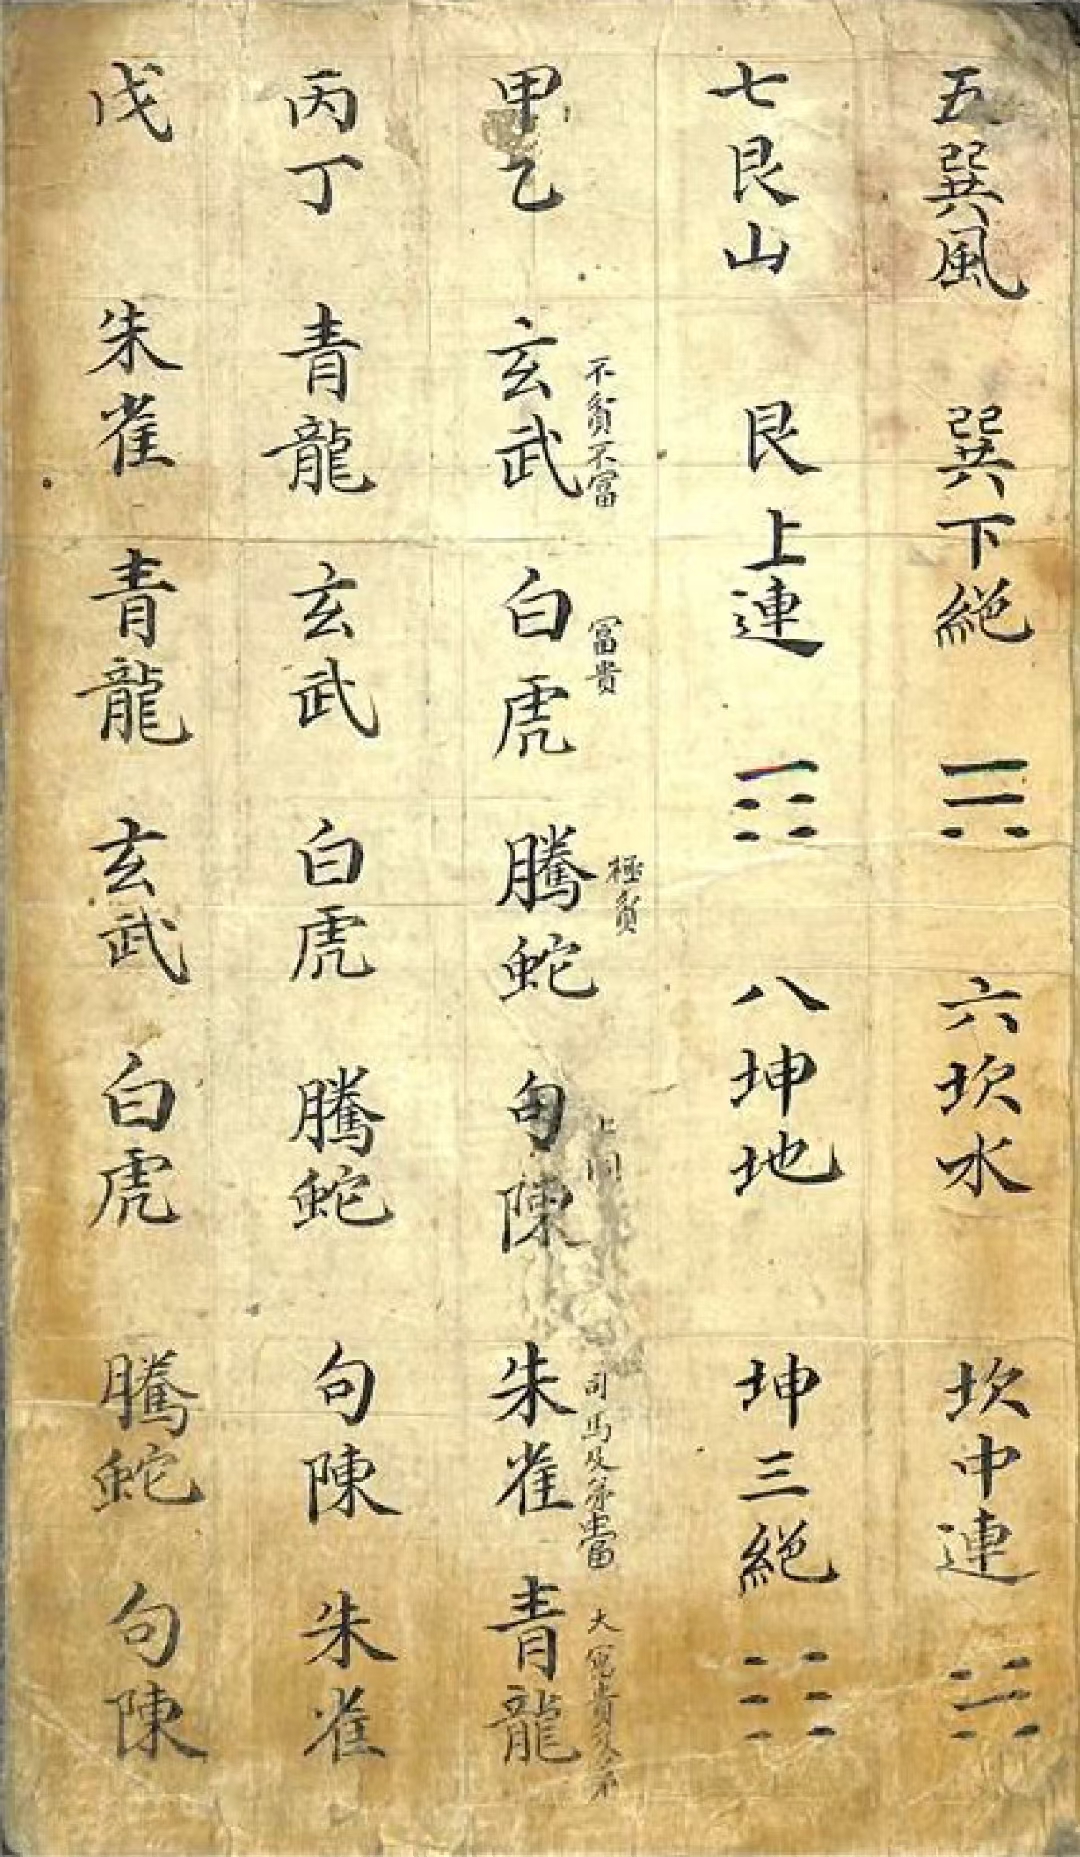 五巽風 巽下絕 ☴ 六坎水 坎中連 ☵
七艮山 艮上連 ☶ 八坤地 坤三絕 ☷
甲乙 玄武 白虎 騰蛇 句陳 朱雀 青龍
不貧不富
富貴
極貧
上同
司馬及第當富
大富貴及第
丙丁 青龍 玄武 白虎 騰蛇 句陳 朱雀
戊 朱雀 青龍 玄武 白虎 騰蛇 句陳